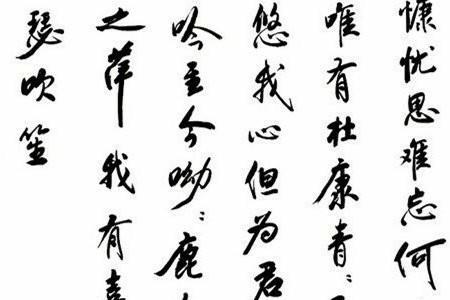 慷忧思难忘何
唯有杜康青〻
悠我心但为君
吟至今呦〻鹿
之苹我有
瑟吹笙